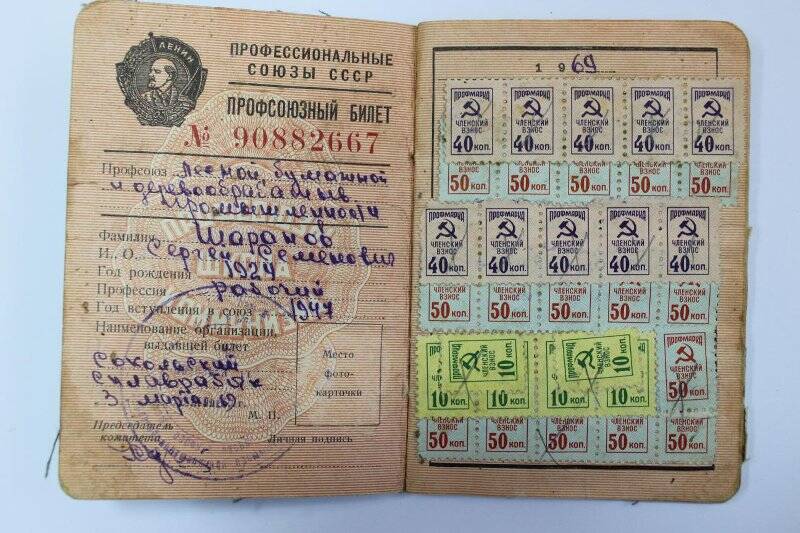 ЛЕНИН
ПРОФЕССИОНАЛЬНЫЕ
СОЮЗЫ СССР
ПРОФСОЮЗНЫЙ БИЛЕТ
№ 90882667
Профсоюз Лесной бумажной
и деревообрабатыв
промышленности
Фамилия Шарапов
И., О. Сергей Семенович
Год рождения 1924
Профессия рабочий
Год вступления в союз 1947
Наименование организации,
выдавшей билет
Сокольский
Сплаврабок
3 марта
М. П.
Место
фото-
карточки
Председатель
комитета
Личная подпись
1969
ПРОФМАРКА ПРОФМАРКА ПРОФМАРКА ПРОФМАРКА ПРОФМАРКА
ЧЛЕНСКИЙ ЧЛЕНСКИЙ ЧЛЕНСКИЙ ЧЛЕНСКИЙ ЧЛЕНСКИЙ
ВЗНОС ВЗНОС ВЗНОС ВЗНОС ВЗНОС
40 КОП. 40 КОП. 40 КОП. 40 КОП. 40 КОП.
50 КОП. 50 КОП. 50 КОП. 50 КОП. 50 КОП.
ПРОФМАРКА ПРОФМАРКА ПРОФМАРКА ПРОФМАРКА ПРОФМАРКА
ЧЛЕНСКИЙ ЧЛЕНСКИЙ ЧЛЕНСКИЙ ЧЛЕНСКИЙ ЧЛЕНСКИЙ
ВЗНОС ВЗНОС ВЗНОС ВЗНОС ВЗНОС
40 КОП. 40 КОП. 40 КОП. 40 КОП. 40 КОП.
ЧЛЕНСКИЙ ЧЛЕНСКИЙ ЧЛЕНСКИЙ ЧЛЕНСКИЙ ЧЛЕНСКИЙ
ВЗНОС ВЗНОС ВЗНОС ВЗНОС ВЗНОС
50 КОП. 50 КОП. 50 КОП. 50 КОП. 50 КОП.
ПРОФМАРКА
ЧЛЕНСКИЙ
ВЗНОС
10 КОП.
10 КОП.
10 КОП.
ПРОФМАРКА
ЧЛЕНСКИЙ
ВЗНОС
10 КОП.
10 КОП.
10 КОП.
ПРОФМАРКА
ЧЛЕНСКИЙ
ВЗНОС
50 КОП.
ВЗНОС ВЗНОС ВЗНОС ВЗНОС ВЗНОС
50 КОП. 50 КОП. 50 КОП. 50 КОП. 50 КОП.